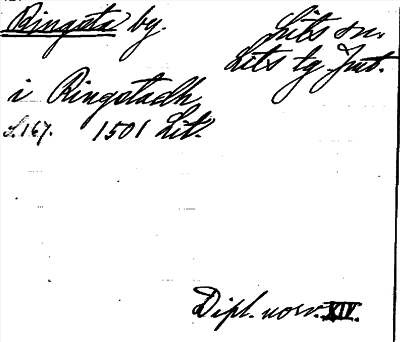 Ringsta by.
Lits sn.
Lits tg Jmt.
i Ringstadh
s. 167. 1501 Lit.
Dipl. norv. XIV.